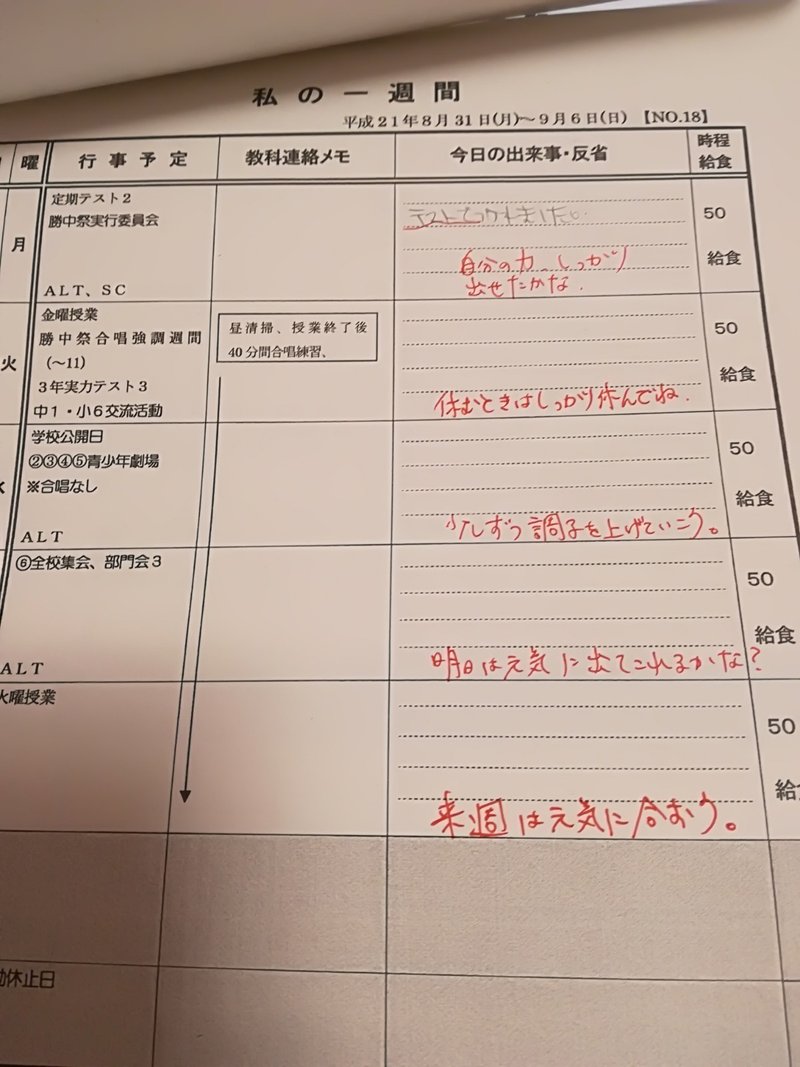 私の一週間
平成21年8月31日(月)～9月6日(日)【NO.18】
曜 行事予定 教科連絡メモ 今日の出来事・反省 時程
給食
月
定期テスト2
勝中祭実行委員会
ALT、SC
テストでつかれました。
自分の力、しっかり
出せたかな.
50
給食
火
金曜授業
勝中祭合唱強調週間
(～11)
3年実力テスト3
中1・小6交流活動
昼清掃、授業終了後
40分間合唱練習、
休むときはしっかり休んでね.
50
給食
学校公開日
②③④⑤青少年劇場
※合唱なし
ALT
少しずつ調子を上げていこう。
50
給食
⑥全校集会、部門会3
ALT
明日は元気に出てこれるかな？
50
給食
火曜授業
来週は元気に会おう。
50
給
休止日